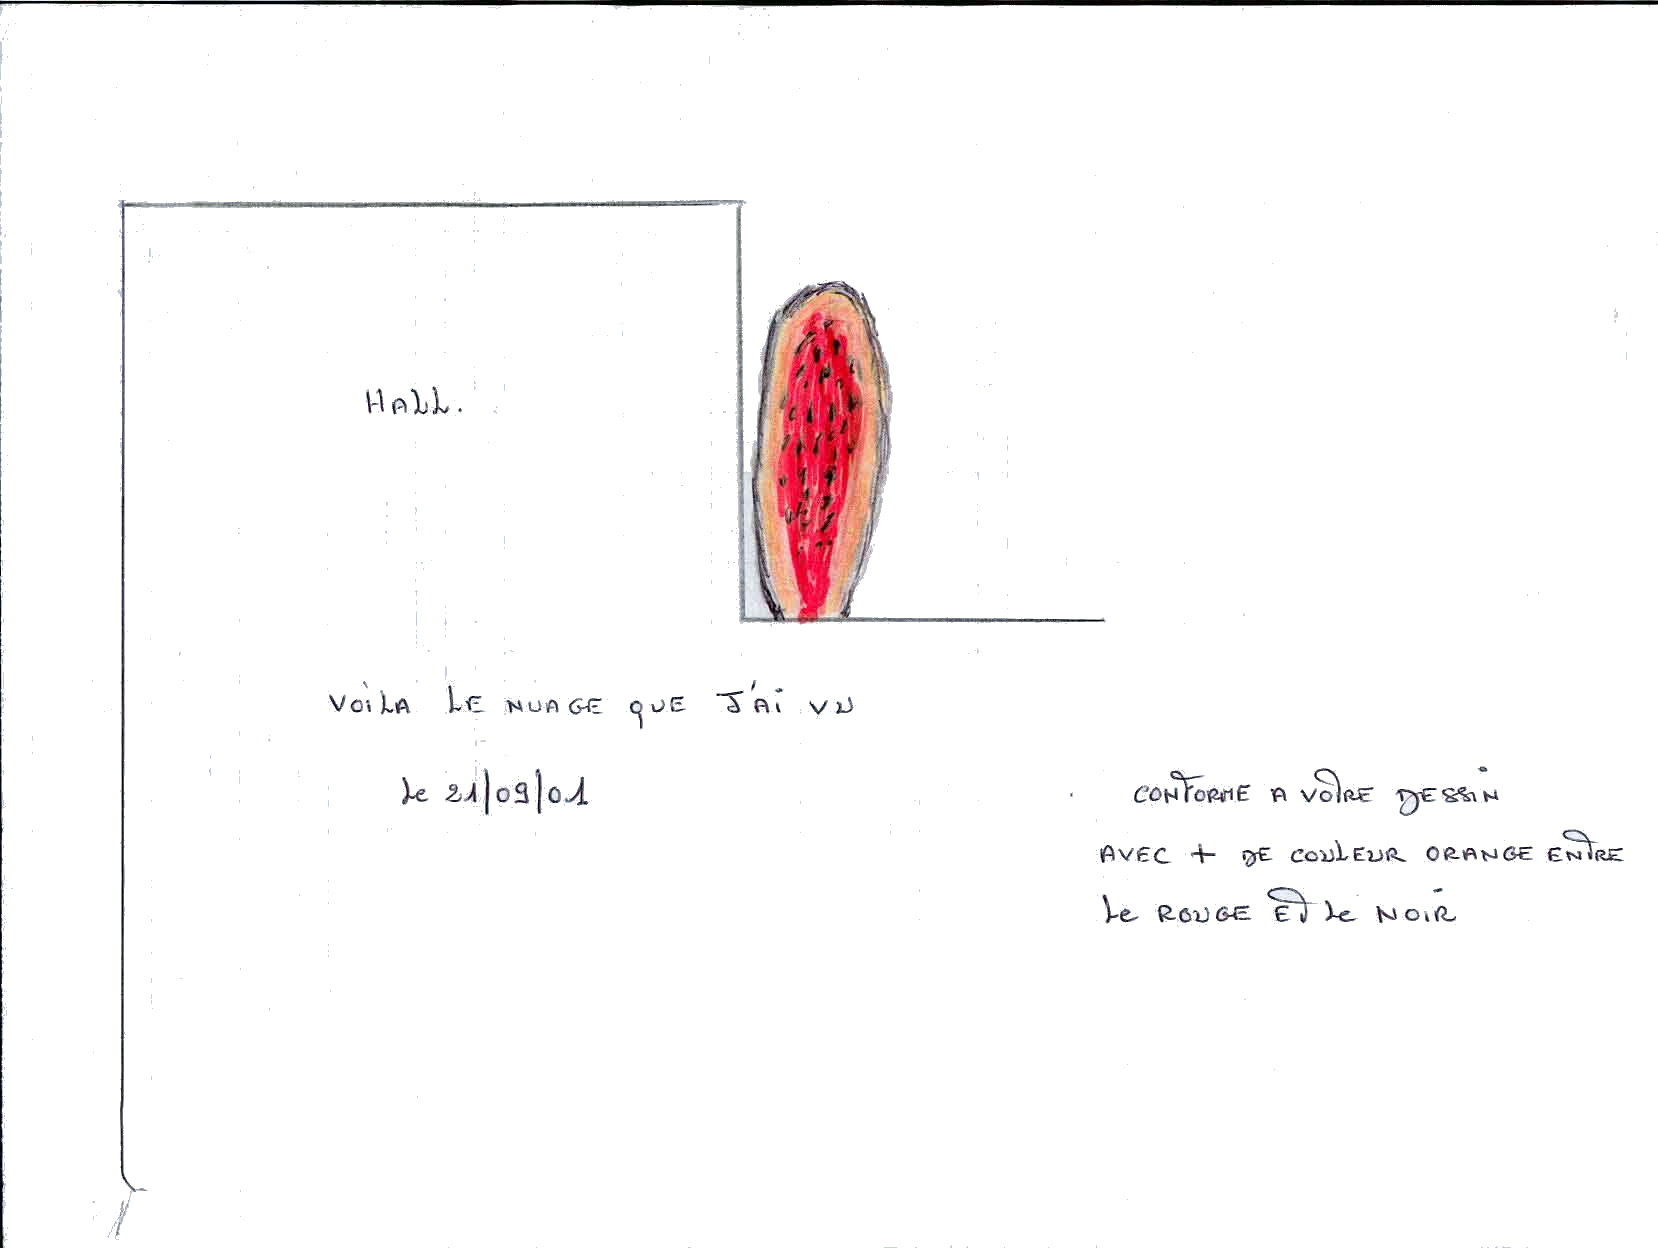 HALL.
VOILA LE NUAGE QUE J'AI VU
Le 21/09/01
CONFORME A VOTRE DESSIN
AVEC + DE COULEUR ORANGE ENTRE
Le ROUGE ET Le NOIR